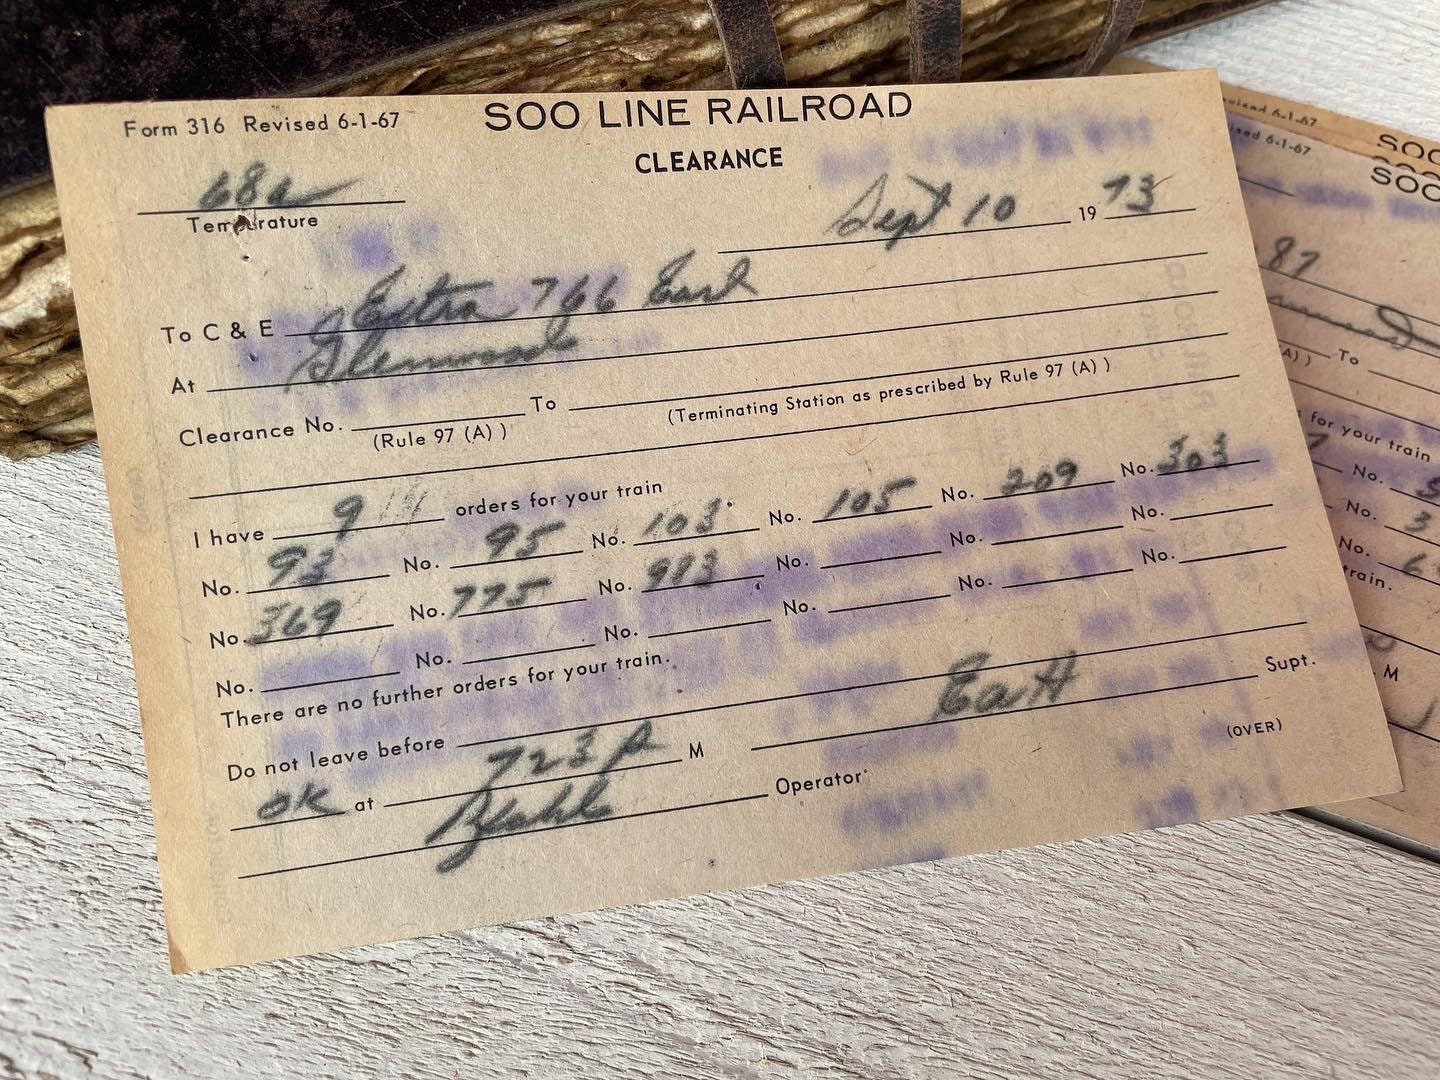 Form 316 Revised 6-1-67 SOO LINE RAILROAD
CLEARANCE
68a
Temperature
Sept 10 19 73
To C & E Extra 766 East
At Glenwood
Clearance No. To
(Rule 97 (A) ) (Terminating Station as prescribed by Rule 97 (A) )
I have 9 orders for your train
No. 93 No. 95 No. 103 No. 105 No. 209 No. 303
No. 369 No. 775 No. 983 No. No. No.
No. No. No. No. No. No.
There are no further orders for your train.
Do not leave before Supt.
OK at 723 P M
Operator
(OVER)
6-1-67 SOO
6-1-67 SOO
87
(A) ) To
for your train
No. 5
No. 3
No. 6
train.
M